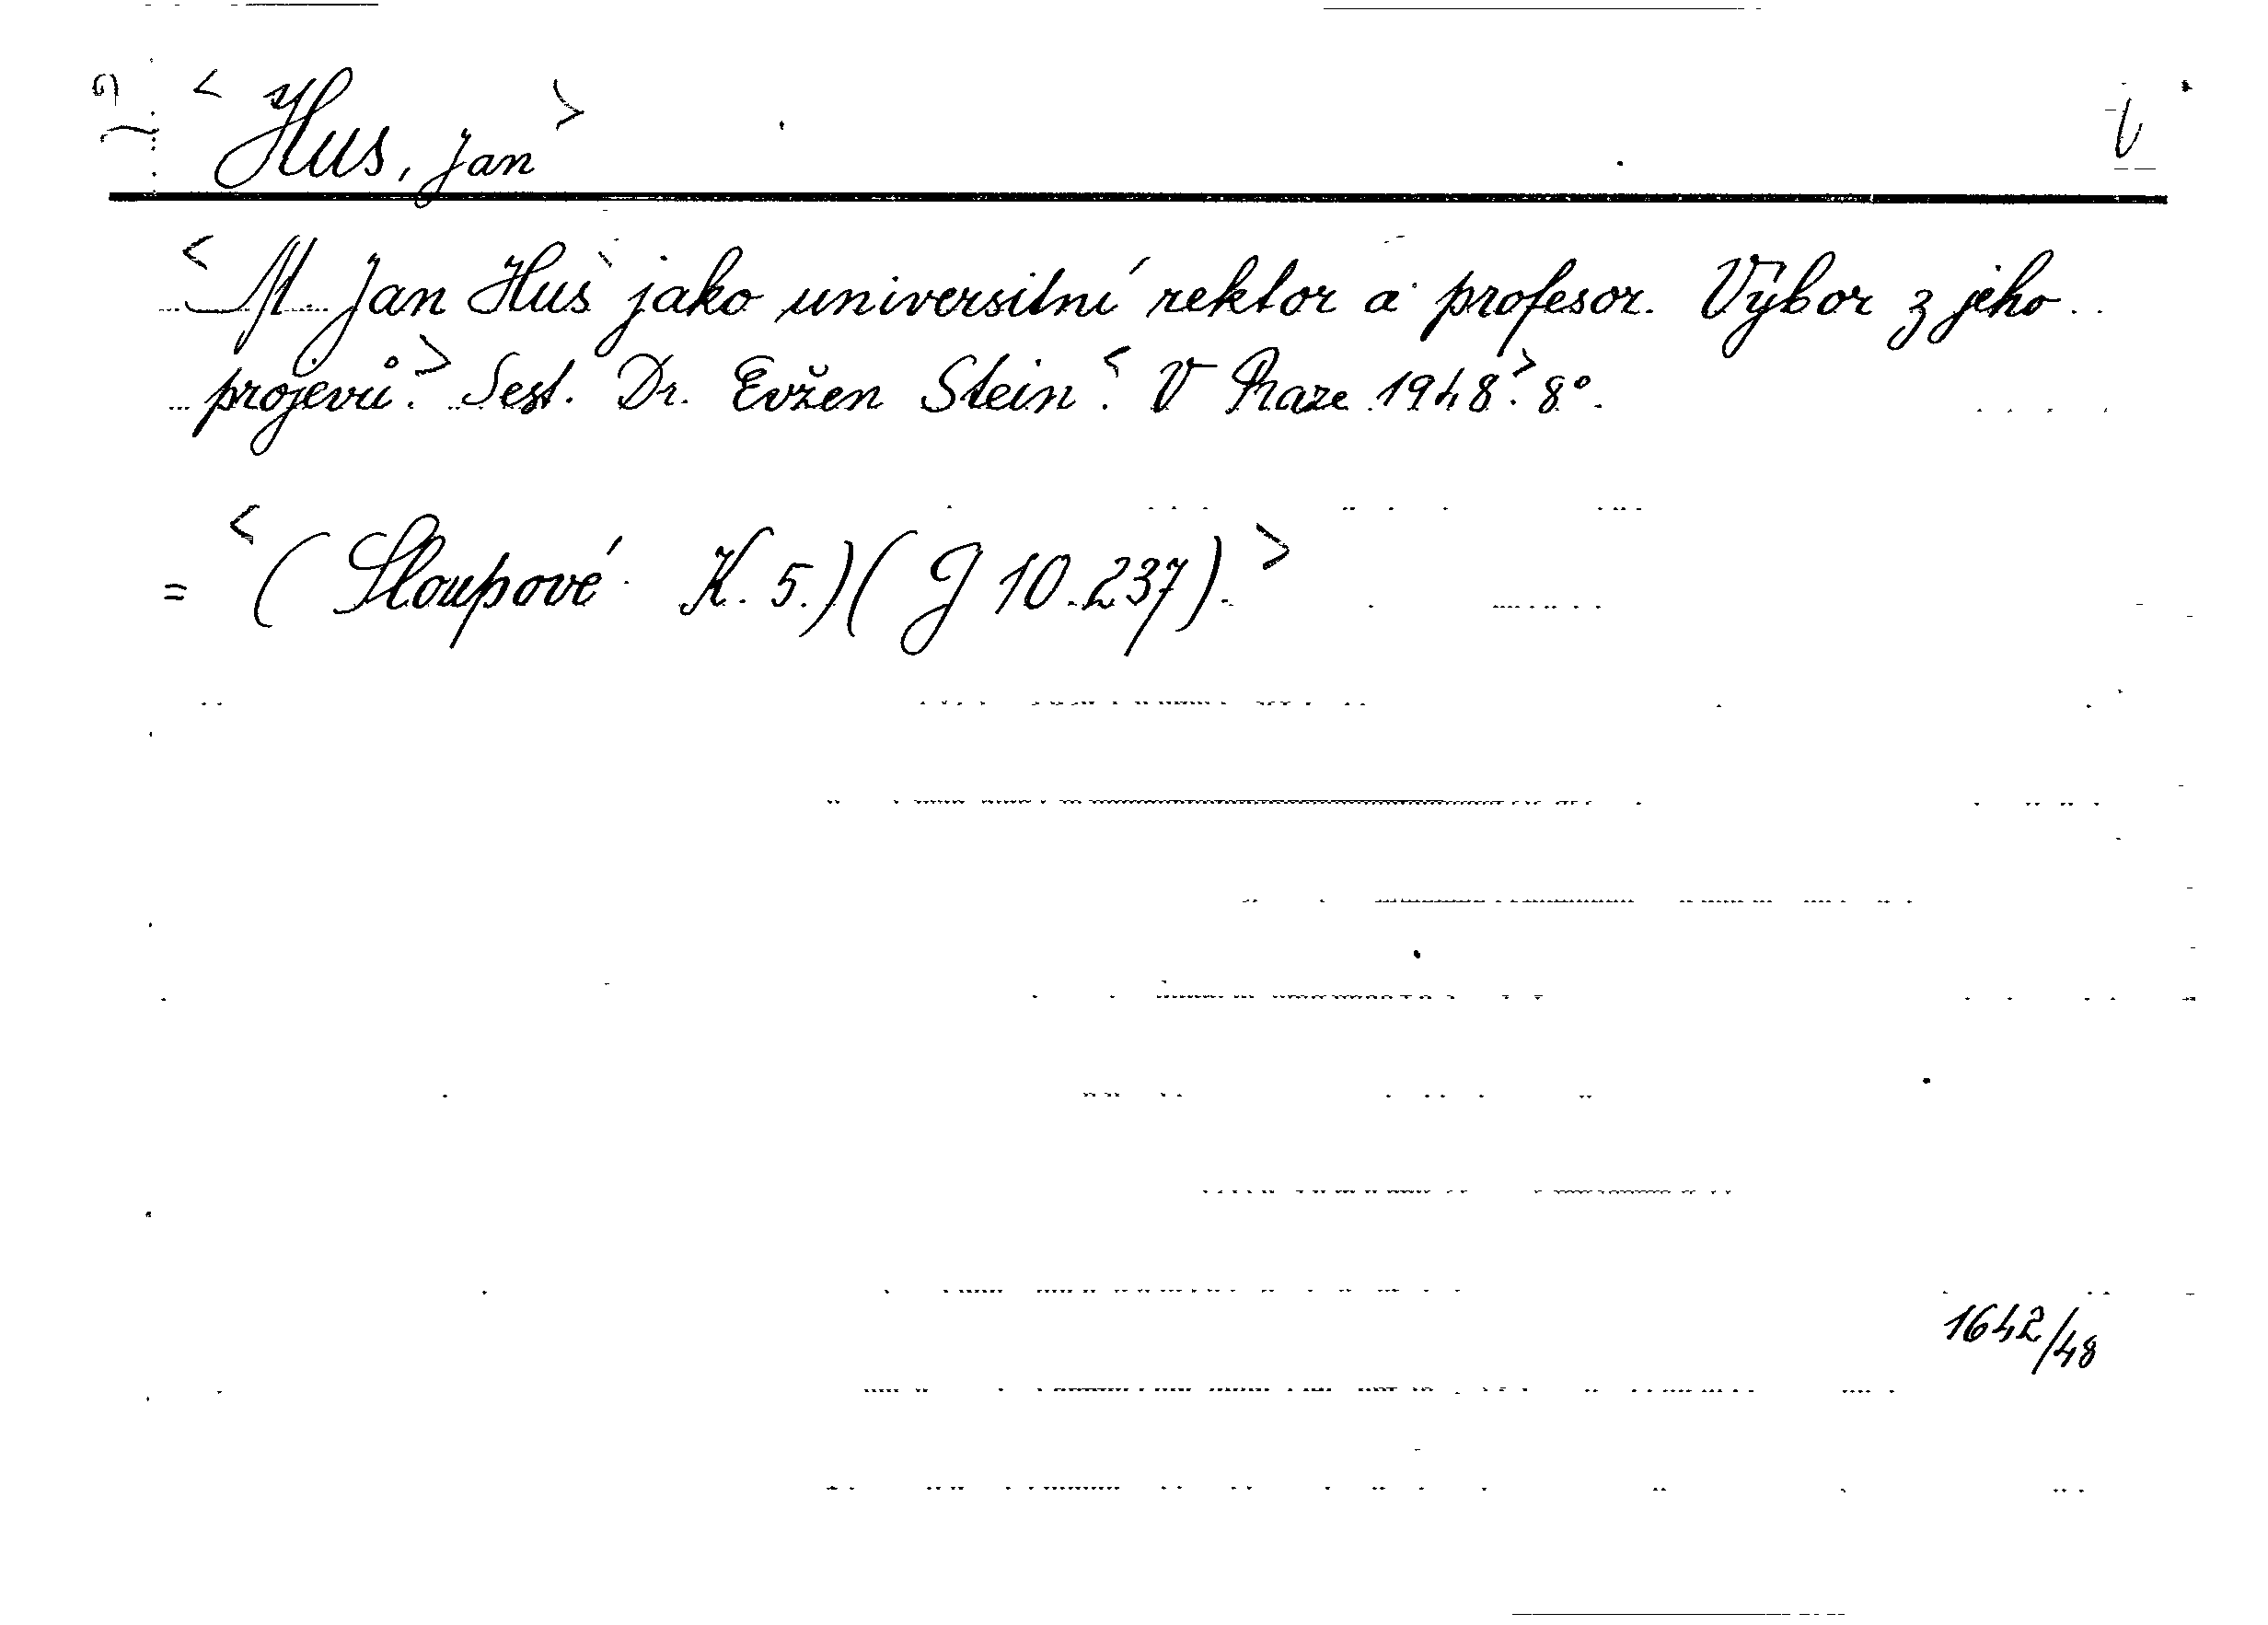 < Hus, Jan >
< M. Jan Hus jako universitní rektor a profesor. Výbor z jeho
projevů. > Sest. Dr. Evžen Stein. < V Praze 1948. > 8°.
= < (Sloupové K. 5.) (J 10.237). >
1642/48